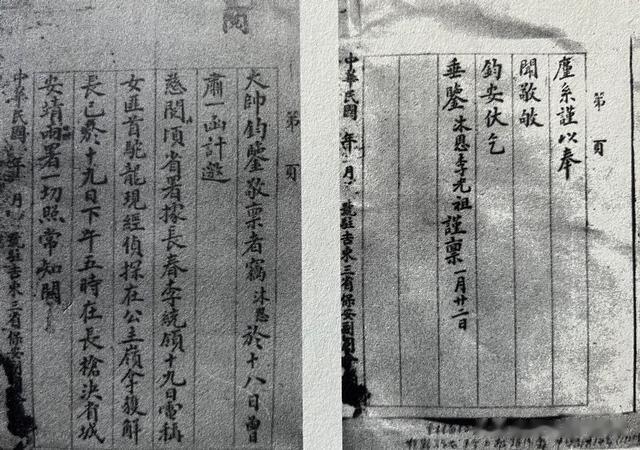 閱
第 頁
大帥鈞鑒敬稟者竊沐恩於十八日曾
肅一函計邀
慈閱頃省署據長春李統領十九日電稱
女匪首駝龍現經偵探在公主嶺拿獲解
長已於十九日下午五時在長槍決省城
安靖兩署一切照常知關
中華民國 年 月 號駐吉東三省保安
第 頁
廑系謹以奉
聞敬敂
鈞安伏乞
垂鑒沐恩李光祖謹稟 一月廿二日
中華民國 年 月 號駐吉東三省保安